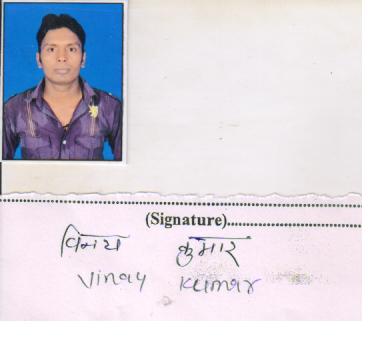 (Signature)........................
विनय कुमार
Vinay Kumar